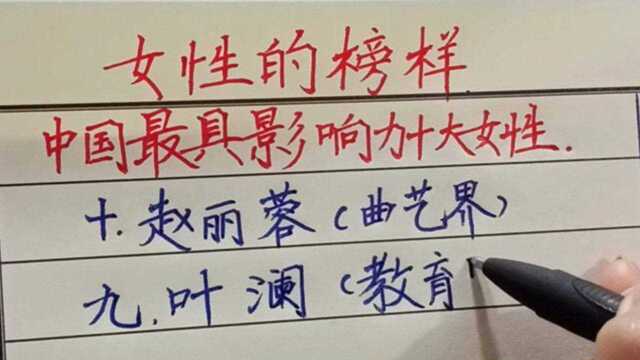 女性的榜样
中国最具影响力十大女性.
十.赵丽蓉(曲艺界)
九.叶澜(教育